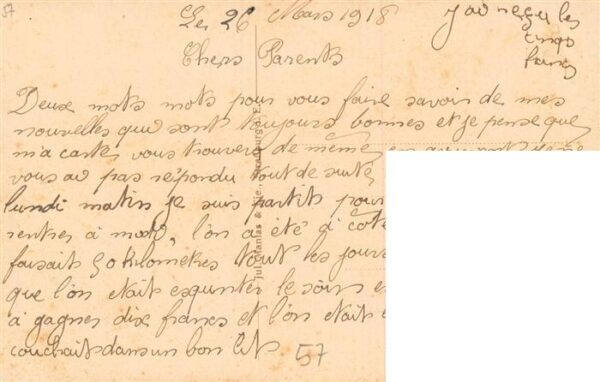 57
Le 26 Mars 1918
J'ai reçu les
cinq
francs
Chers Parents
Deux mots mots pour vous faire savoir de mes
nouvelles qui sont toujours bonnes et je pense que
ma carte vous trouvera de même
vous ai pas répondu tout de suite
lundi matin je suis partit pour
rentres à l'on a été à côté
faisait 50 kilometres tout les jours
que l'on etait esquinter le soir e
à gagner dix francs et l'on etait
couchait dans un bon lit
57
Jul. Manias & Cie., Strasbourg i. E.